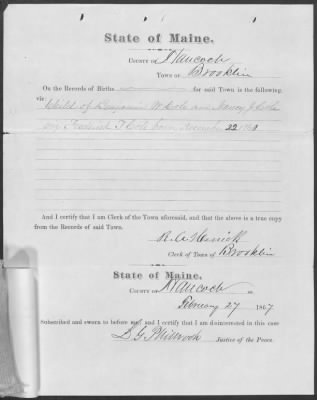 State of Maine.
COUNTY OF Hancock
TOWN OF Brooklin
On the Records of Births for said Town is the following
viz: Child of Benjamin W Cole and Nancy J Cole
born 22
And I certify that I am Clerk of the Town aforesaid, and that the above is a true copy
from the Records of said Town.
R. A. Herrick
Clerk of Town of Brooklin
State of Maine.
COUNTY OF Hancock ss.
February 27 1867
Subscribed and sworn to before me; and I certify that I am disinterested in this case
Justice of the Peace.